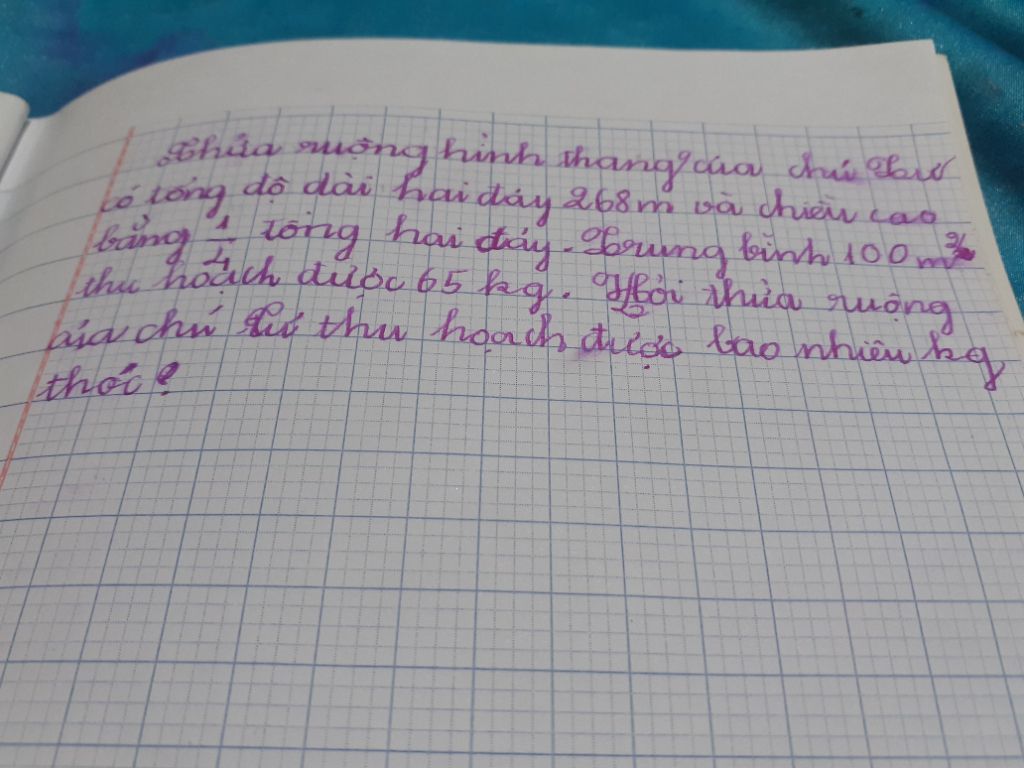 Thửa ruộng hình thang của chú Tư
có tổng độ dài hai đáy 268m và chiều cao
bằng 1/4 tổng hai đáy. Trung bình 100m²
thu hoạch được 65 kg. Hỏi thửa ruộng
của chú Tư thu hoạch được bao nhiêu kg
thóc?